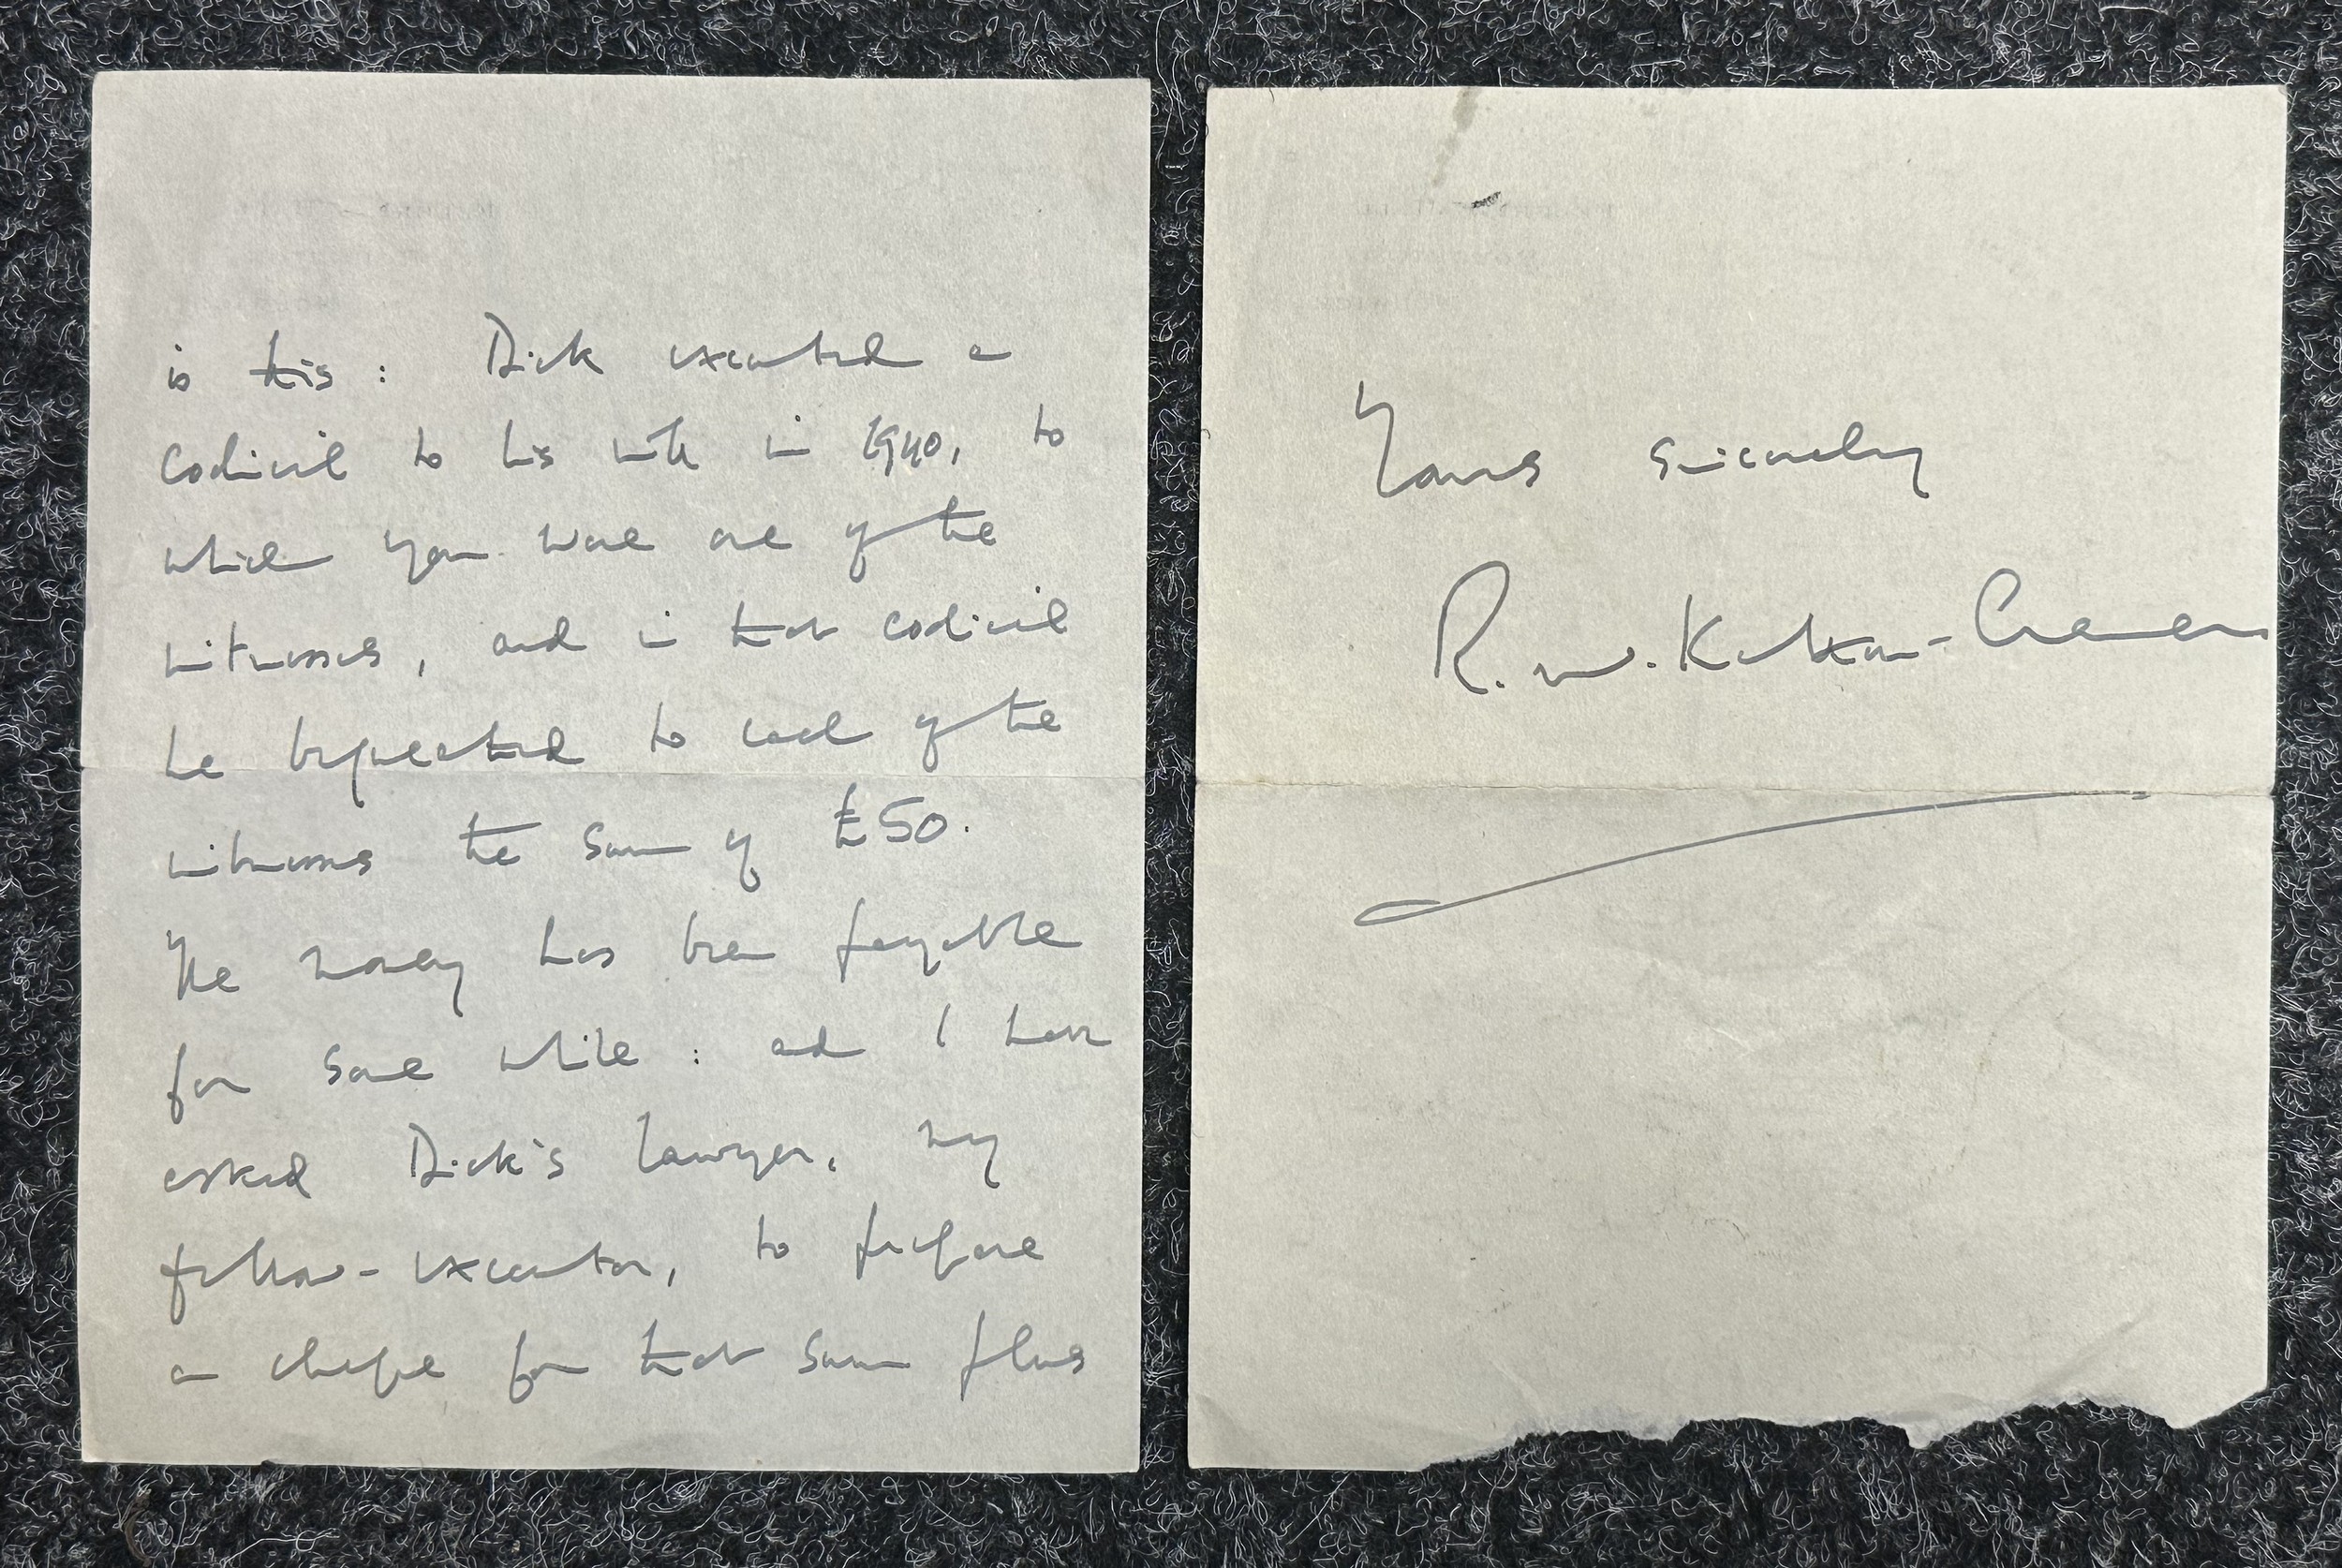 is this : Dick executed a
Codicil to his will in 1940, to
which you were one of the
witnesses, and in that codicil
he bequeathed to each of the
witnesses the sum of £50.
The money has been payable
for some while : and I have
asked Dick's lawyer, my
fellow-executor, to prepare
a cheque for that sum plus
Yours sincerely
R. W. Ketton-Cremer